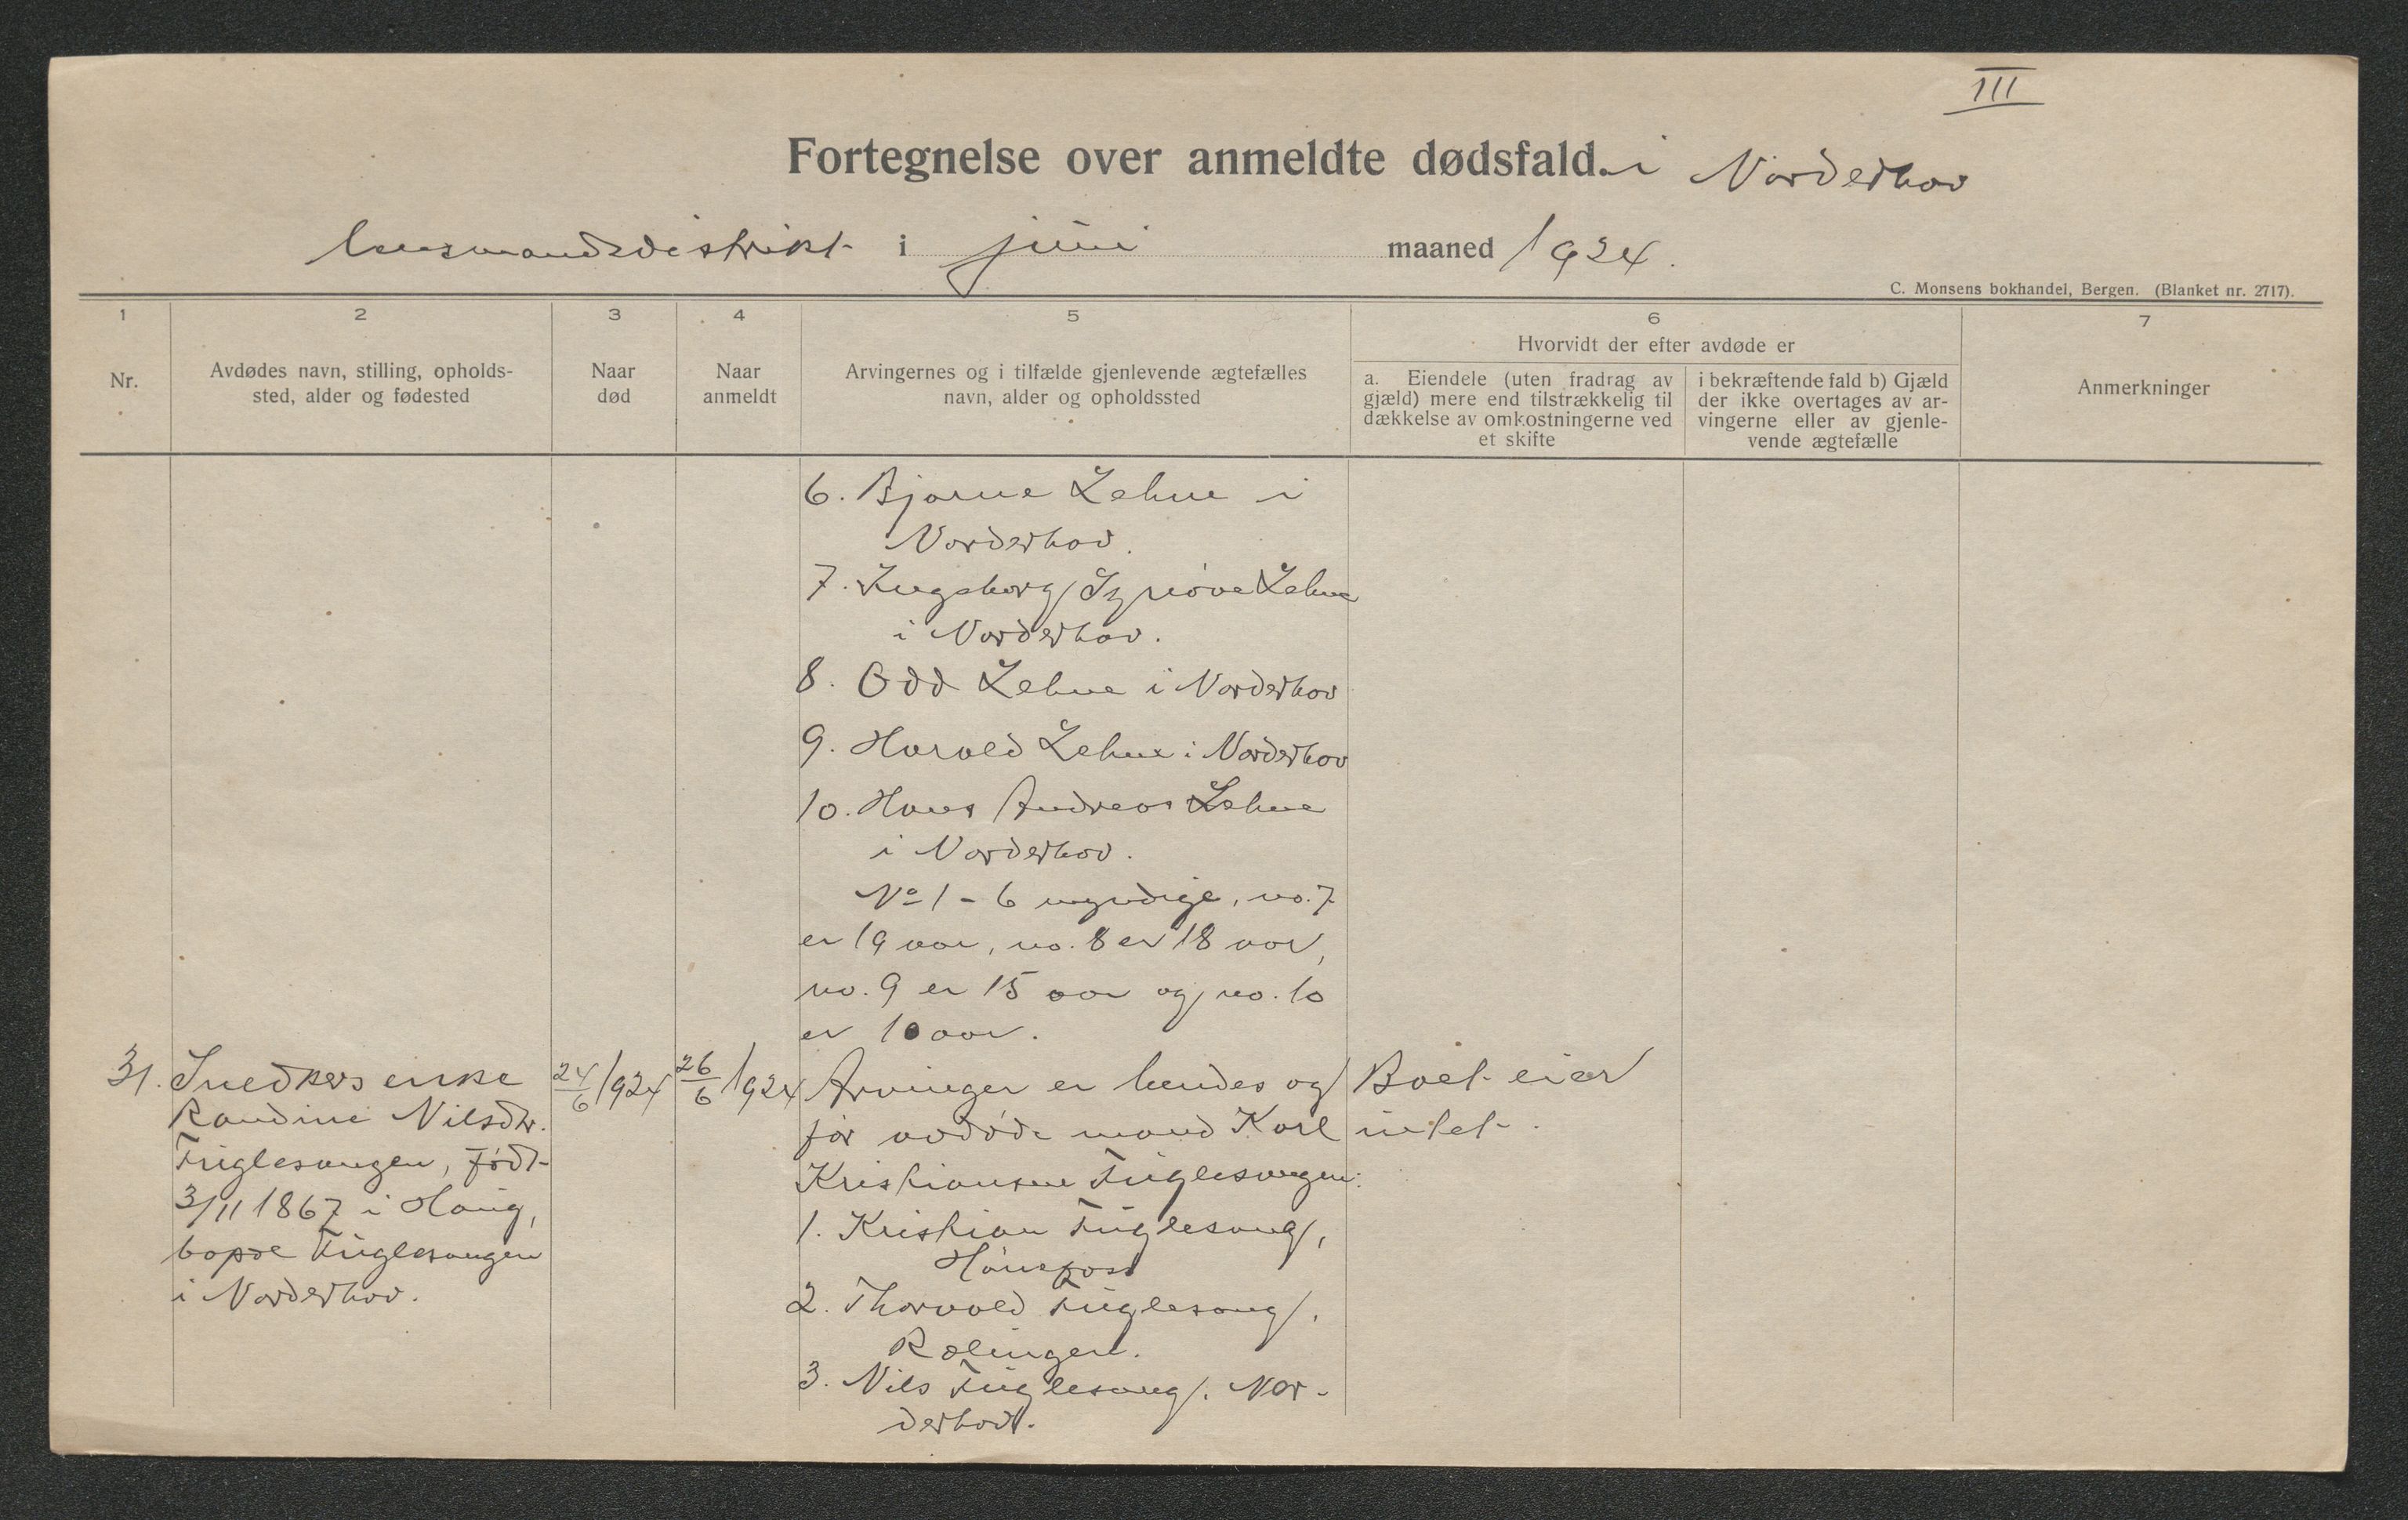 III
Fortegnelse over anmeldte dødsfald. i Norderhov
lensmandsdistrikt i juni maaned 1924.
C. Monsens bokhandel, Bergen. (Blanket nr. 2717).
1 2 3 4 5 6 7
Nr.
Avdødes navn, stilling, opholds-
sted, alder og fødested
Naar
død
Naar
anmeldt
Arvingernes og i tilfælde gjenlevende ægtefælles
navn, alder og opholdssted
Hvorvidt der efter avdøde er
a. Eiendele (uten fradrag av
gjæld) mere end tilstrækkelig til
dækkelse av omkostningerne ved
et skifte
i bekræftende fald b) Gjæld
der ikke overtages av ar-
vingerne eller av gjenle-
vende ægtefælle
Anmerkninger
6. Bjarne Lehne i
Norderhov.
7. Ingeborg Synøve Lehne
i Norderhov.
8. Odd Lehne i Norderhov
9. Harald Lehne i Norderhov
10. Hans Andreas Lehne
i Norderhov.
No 1 - 6 myndige, no. 7
er 19 aar, no. 8 er 18 aar,
no. 9 er 15 aar og no. 10
er 10 aar.
31.
Snedkers enke
Randine Nilsdtr.
Fuglesangen, født
3/11 1867 i Haug,
bopæl Fuglesangen
i Norderhov.
24/6 1924
26/6 1924
Arvinger er hendes og
før avdøde mand Karl
Kristiansen Fuglesangen:
1. Kristian Fuglesang,
Hønefoss
2. Thorvald Fuglesang,
Rælingen.
3. Nils Fuglesang, Nor-
derhov.
Boet eier
intet.